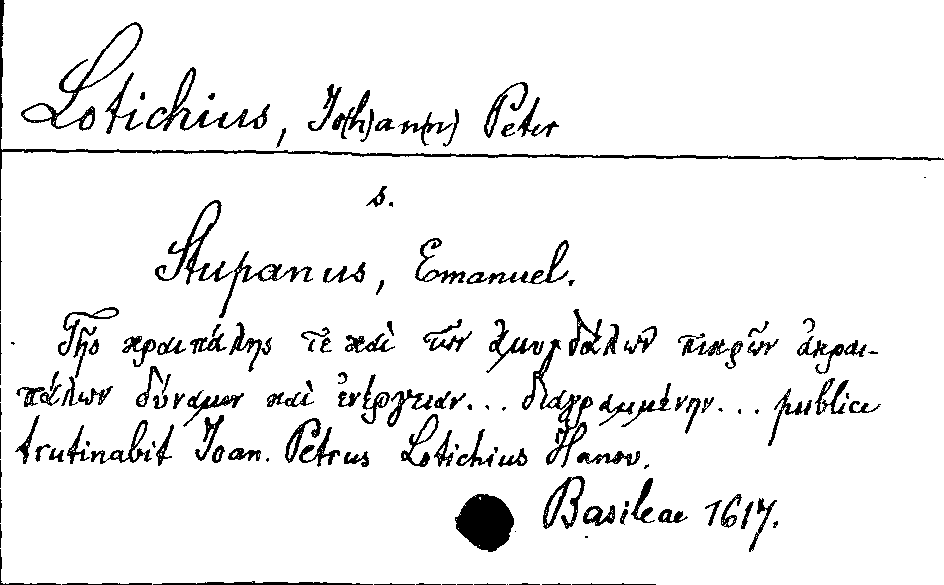 Lotichius, Jo(h)an(n) Peter
s.
Stupanus, Emanuel.
Τῆς κραιπάλης τὲ καὶ τῶν ἀμυγδάλων πικρῶν ἀκραι-
πάλων δύναμιν καὶ ἐνέργειαν... διαγραμμένην... publice
trutinabit Joan. Petrus Lotichius Hanov.
Basileae 1617.